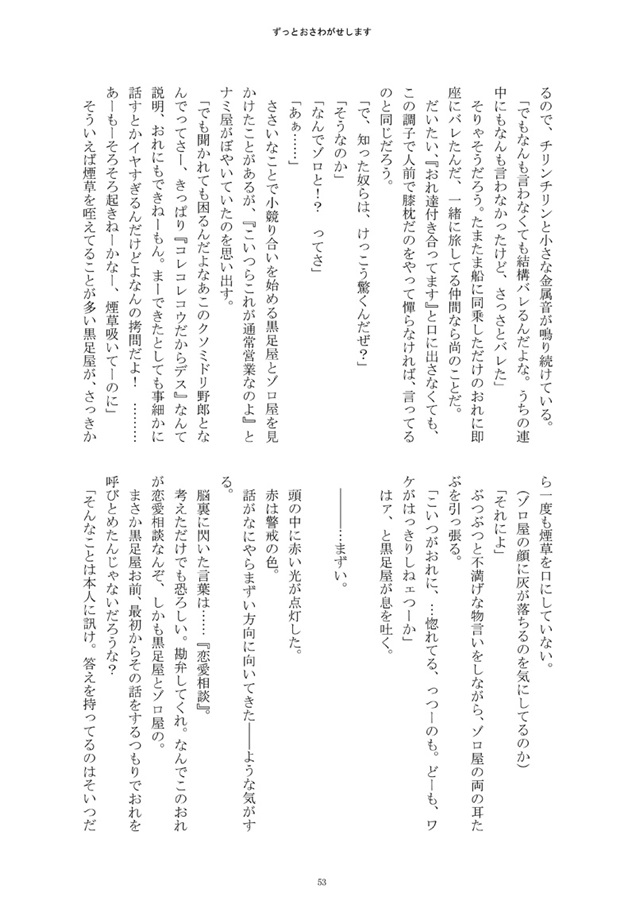 ずっとおさわがせします
るので、チリンチリンと小さな金属音が鳴り続けている。
「でもなんも言わなくても結構バレるんだよな。うちの連
中にもなんも言わなかったけど、さっさとバレた」
そりゃそうだろう。たまたま船に同乗しただけのおれに即
座にバレたんだ、一緒に旅してる仲間なら尚のことだ。
だいたい、『おれ達付き合ってます』と口に出さなくても、
この調子で人前で膝枕だのをやって憚らなければ、言ってる
のと同じだろう。
「で、知った奴らは、けっこう驚くんだぜ？」
「そうなのか」
「なんでゾロと！？　ってさ」
「あぁ……」
ささいなことで小競り合いを始める黒足屋とゾロ屋を見
かけたことがあるが、『こいつらこれが通常営業なのよ』と
ナミ屋がぼやいていたのを思い出す。
「でも聞かれても困るんだよなあこのクソミドリ野郎とな
んでってさー、きっぱり『コレコレコウだからデス』なんて
説明、おれにもできねーもん。まーできたとしても事細かに
話すとかイヤすぎるんだけどよなんの拷問だよ！　………
あーもーそろそろ起きねーかなー、煙草吸いてーのに」
そういえば煙草を咥えてることが多い黒足屋が、さっきか
ら一度も煙草を口にしていない。
（ゾロ屋の顔に灰が落ちるのを気にしてるのか）
「それによ」
ぶつぶつと不満げな物言いをしながら、ゾロ屋の両の耳た
ぶを引っ張る。
「こいつがおれに、…惚れてる、っつーのも。どーも、ワ
ケがはっきりしねェつーか」
はァ、と黒足屋が息を吐く。
――――…まずい。
頭の中に赤い光が点灯した。
赤は警戒の色。
話がなにやらまずい方向に向いてきた――ような気がす
る。
脳裏に閃いた言葉は……『恋愛相談』。
考えただけでも恐ろしい。勘弁してくれ。なんでこのおれ
が恋愛相談なんぞ、しかも黒足屋とゾロ屋の。
まさか黒足屋お前、最初からその話をするつもりでおれを
呼びとめたんじゃないだろうな？
「そんなことは本人に訊け。答えを持ってるのはそいつだ
53